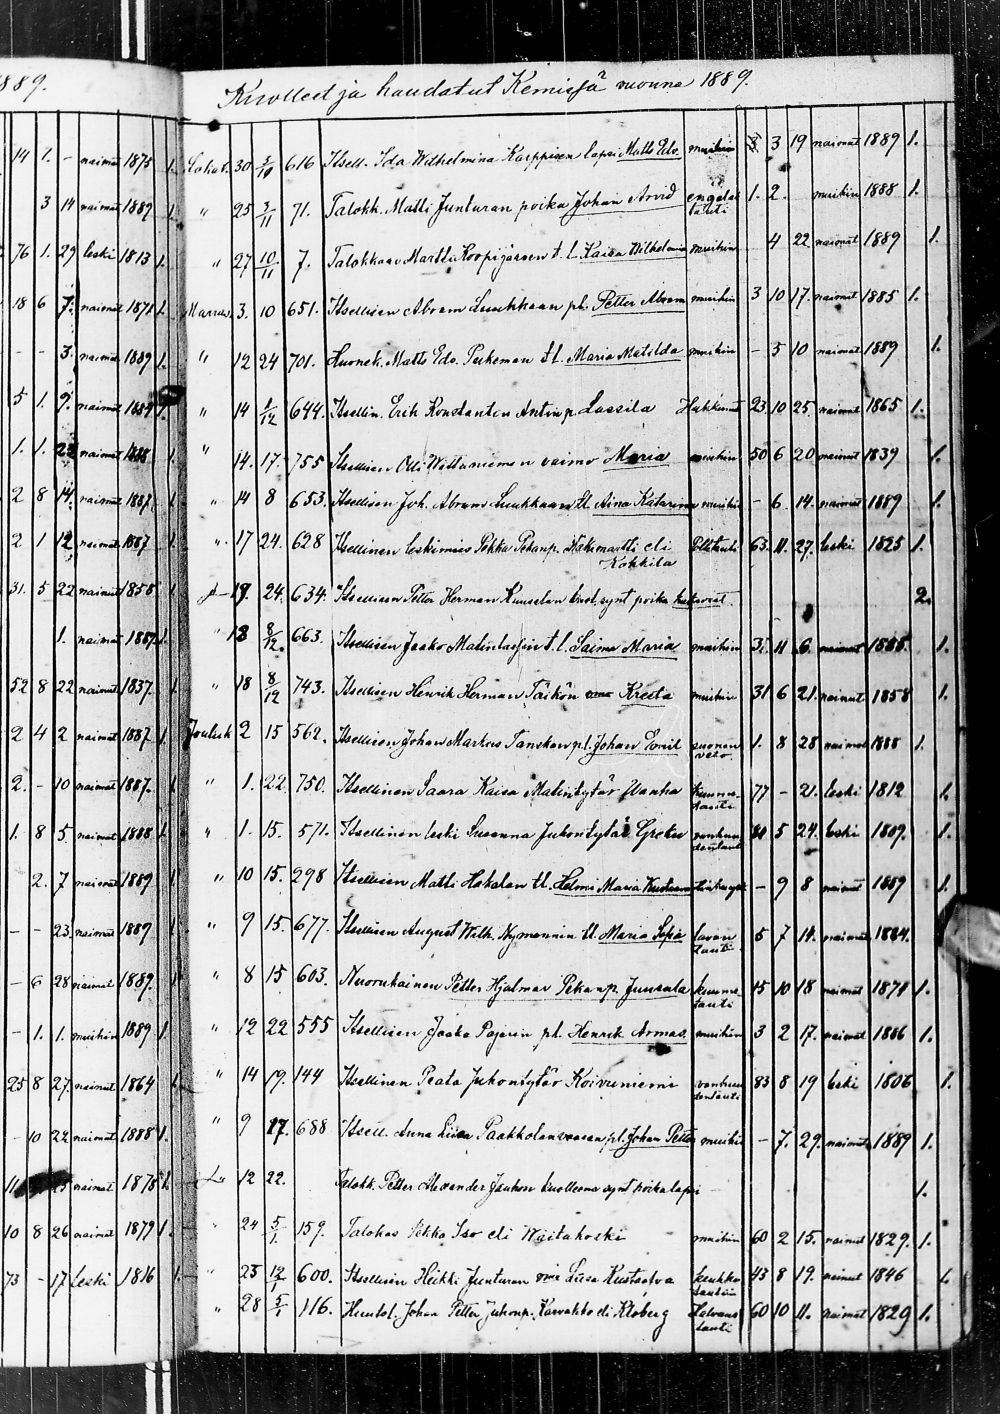 1889.
Kuolleet ja haudatut Kemissä vuonna 1889.
14 7. - naimat 1875 1.
3 14 naimat 1889 1.
76 1. 29 leski 1813 1.
18 6 7. naimat 1871 1.
- - 3. naimat 1889 1.
5 1. 9. naimat 1884 1.
1. 1. naimat 1888 1.
2 8 14. naimat 1887 1.
2 1 12 naimat 1887 1.
31. 5 22 naimat 1858 1.
1. naimat 1887 1.
52 8 22 naimat 1837. 1.
2 4 2 naimat 1887. 1.
2. - 10 naimat 1887. 1.
1. 8 5 naimat 1888 1.
2. 7 naimat 1889 1.
- - 23. naimat 1889 1.
- 6 28 naimat 1889. 1.
- 1. 1. muihin 1889 1.
25 8 27. naimat 1864 1.
- 10 22 naimat 1888 1.
naimat 1878 1.
10 8 26 naimat 1879 1.
73 - 17 Leski 1816 1.
Lokak. 30 3/10 616 Itsell. Ida Wilhelmina Karppisen lapsi Matts Edv. muihin 3 19 naimat 1889 1.
" 25 3/11 71. Talokk. Matti Junturan poika Johan Arvid engelsi tauti 1. 2. muihin 1888 1.
" 27 10/11 7. Talokkaan Martti Koopijärven t. l. Kaisa Wilhelmina muihin 4 22 naimat 1889 1.
Marras. 3. 10 651. Itsellisen Abram Luukkaan pl. Petter Abram muihin 3 10 17. naimat 1885 1.
" 12 24 701. Huonek. Matts Edv. Peekeman t l. Maria Matilda muihin - 5 10 naimat 1889 1.
" 14 1/12 644. Itsellin. Erik Konstantin Antin p. Lassila Hukkunut 23 10 25. naimat 1865 1.
" 14. 17. 755 Itsellisen Olli Wittaniemen vaimo Maria muihin 50 6 20 naimat 1839 1.
" 14 8 653. Itsellisen Joh. Abram Luukkaan tl. Aina Katarina muihin - 6. 14. naimat 1889 1.
" 17 24. 628 Itsellinen leskimies Pekka Pekanp. Näkimartti eli
Kokkila 63. 11. 27. leski 1825 1.
24. 634. Itsellisen Petter Herman Kuuselan kuol. synt poika 2.
" 18 8/12 663. Itsellisen Jaako Matinlassin t. l. Saima Maria muihin 3. 11 6. naimat 1885. 1.
" 18 8/12 743. Itsellisen Henrik Herman Täikön vmo Kreeta muihin 31 6 21. naimat 1858 1.
Jouluk 2 15 562. Itsellisen Johan Markus Tanskan pl. Johan Emil suonen veto. 1. 8 28 naimat 1888 1.
" 1. 22. 750. Itsellinen Saara Kaisa Matintytär Wanha kuume tauti 77 - 21. leski 1812 1.
" 1. 15. 571. Itsellinen leski Susanna Juhontytär Greker vanhuudentauti 5 24. leski 1809. 1.
" 10 15. 298 Itsellisen Matti Hakalan tl. Helmi Maria - 9 8 naimat 1889 1.
" 9 15. 677. Itsellisen August Wilh. Nymannin tl. Maria Sofia lavan tauti 5 7 14. naimat 1884.
" 8 15 603. Nuorukainen Petter Hjalmar Pekanp. Junsala kuume tauti 15 10 18 naimat 1874 1.
" 12 22 555 Itsellisen Jaako Pajarin pl. Henrik Armas muihin 3 2 17. naimat 1886 1.
" 14 19. 144 Itsellinen Peata Juhontytär Koivuniemi vanhuudentauti 83 8 19 leski 1806 1.
" 9 17. 688 Itsell. Anna Liisa Paakkolanvaaran pl. Johan Petter muihin - 7. 29. naimat 1889 1.
12 22. Talokk. Petter Alexander Jaukon kuolleena synt poikalapsi 1.
" 24 5/1 159. Talokas Pekka Iso eli Waitakoski muihin 60 2 15. naimat 1829. 1.
" 23 12/1 600. Itsellisen Heikki Junturan vmo Liisa Kustaatva keuhko tautiin 43 8 19. naimat 1846 1.
" 28 5/1 116. Huutol. Johan Petter Juhonp. Karvakko eli Kloberg Halvaus tauti 60 10 11. naimat 1829 1.